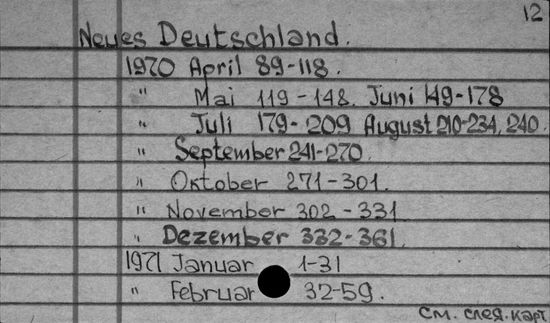 12
Neues Deutschland.
1970 April 89-118.
" Mai 119-148. Juni 149-178
" Juli 179-209 August 210-234, 240.
" September 241-270.
" Oktober 271-301.
" November 302-331
" Dezember 332-361.
1971 Januar 1-31
" Februar 32-59.
см. след. карт